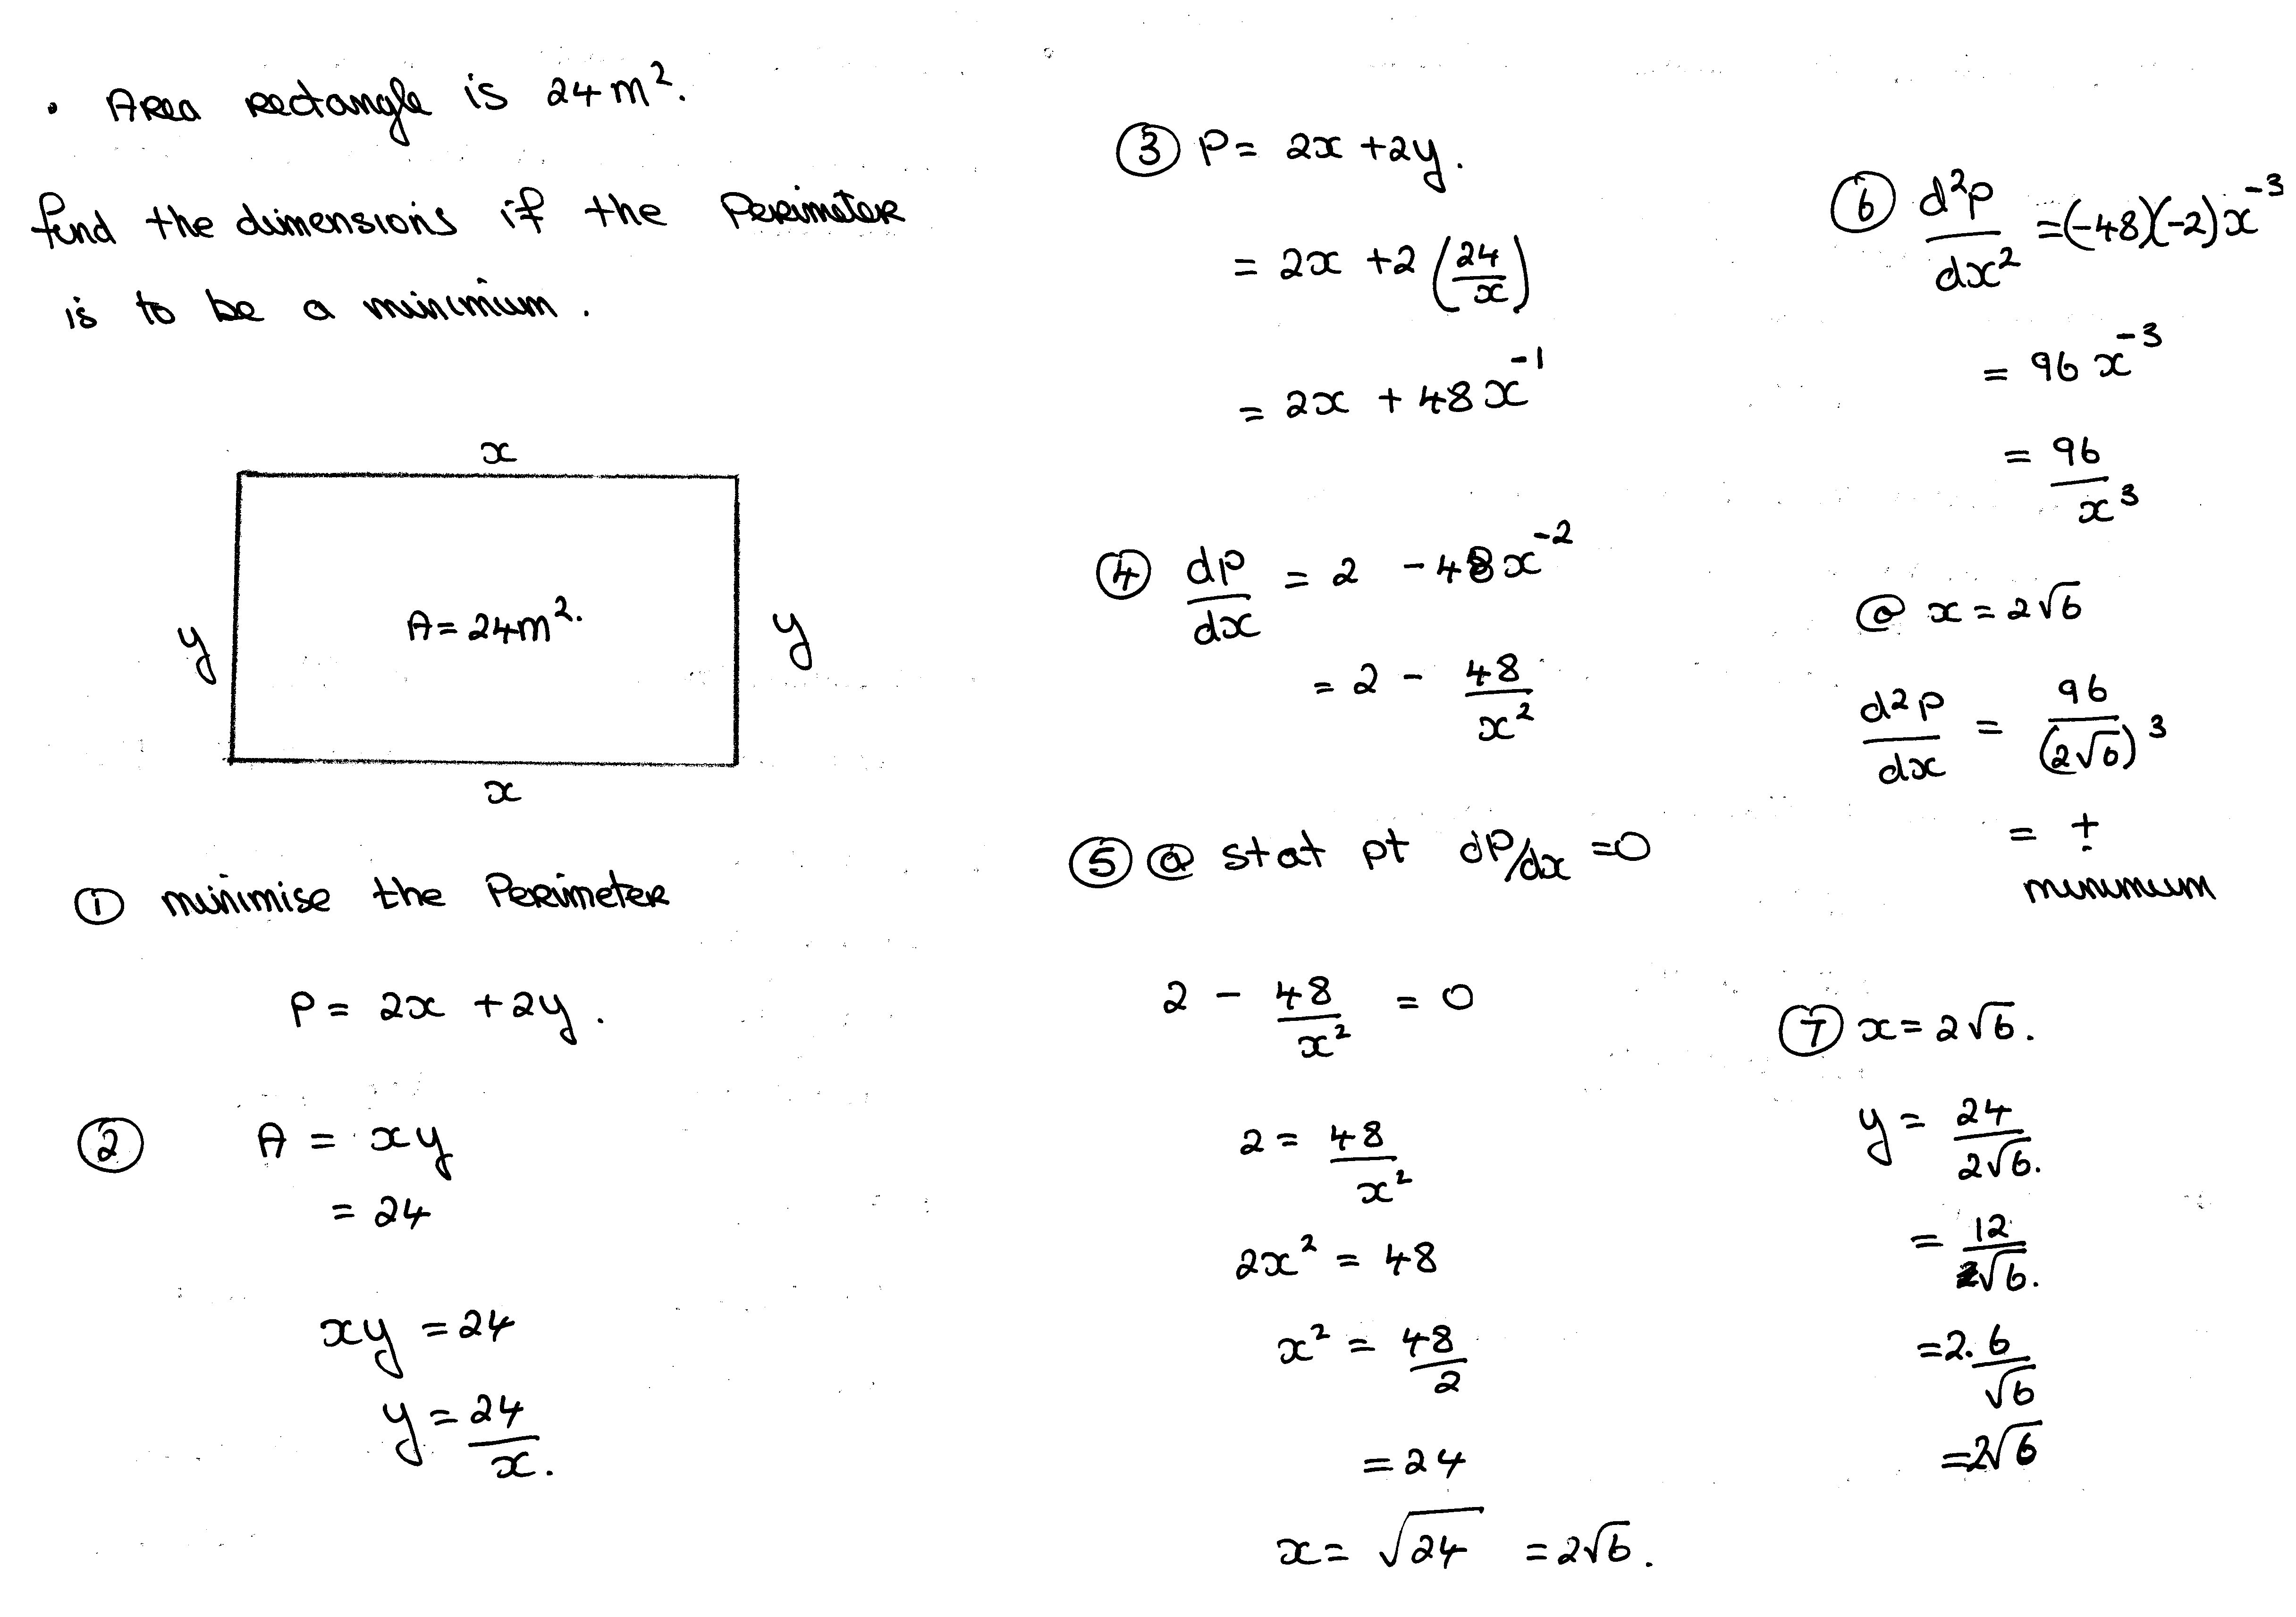 • Area rectangle is 24m².
find the dimensions if the Perimeter
is to be a minimum.
x
y
A = 24m².
y
x
① minimise the Perimeter
P = 2x + 2y.
② A = xy
= 24
xy = 24
y = 24/x.
③ P = 2x + 2y.
= 2x + 2(24/x)
= 2x + 48x⁻¹
④ dp/dx = 2 - 48x⁻²
= 2 - 48/x²
⑤ @ stat pt dP/dx = 0
2 - 48/x² = 0
2 = 48/x²
2x² = 48
x² = 48/2
= 24
x = √24 = 2√6.
⑥ d²p/dx² = (-48)(-2)x⁻³
= 96x⁻³
= 96/x³
@ x = 2√6
d²p/dx = 96/(2√6)³
= +
minimum
⑦ x = 2√6.
y = 24/2√6.
= 12/√6.
= 2.6/√6
= 2√6